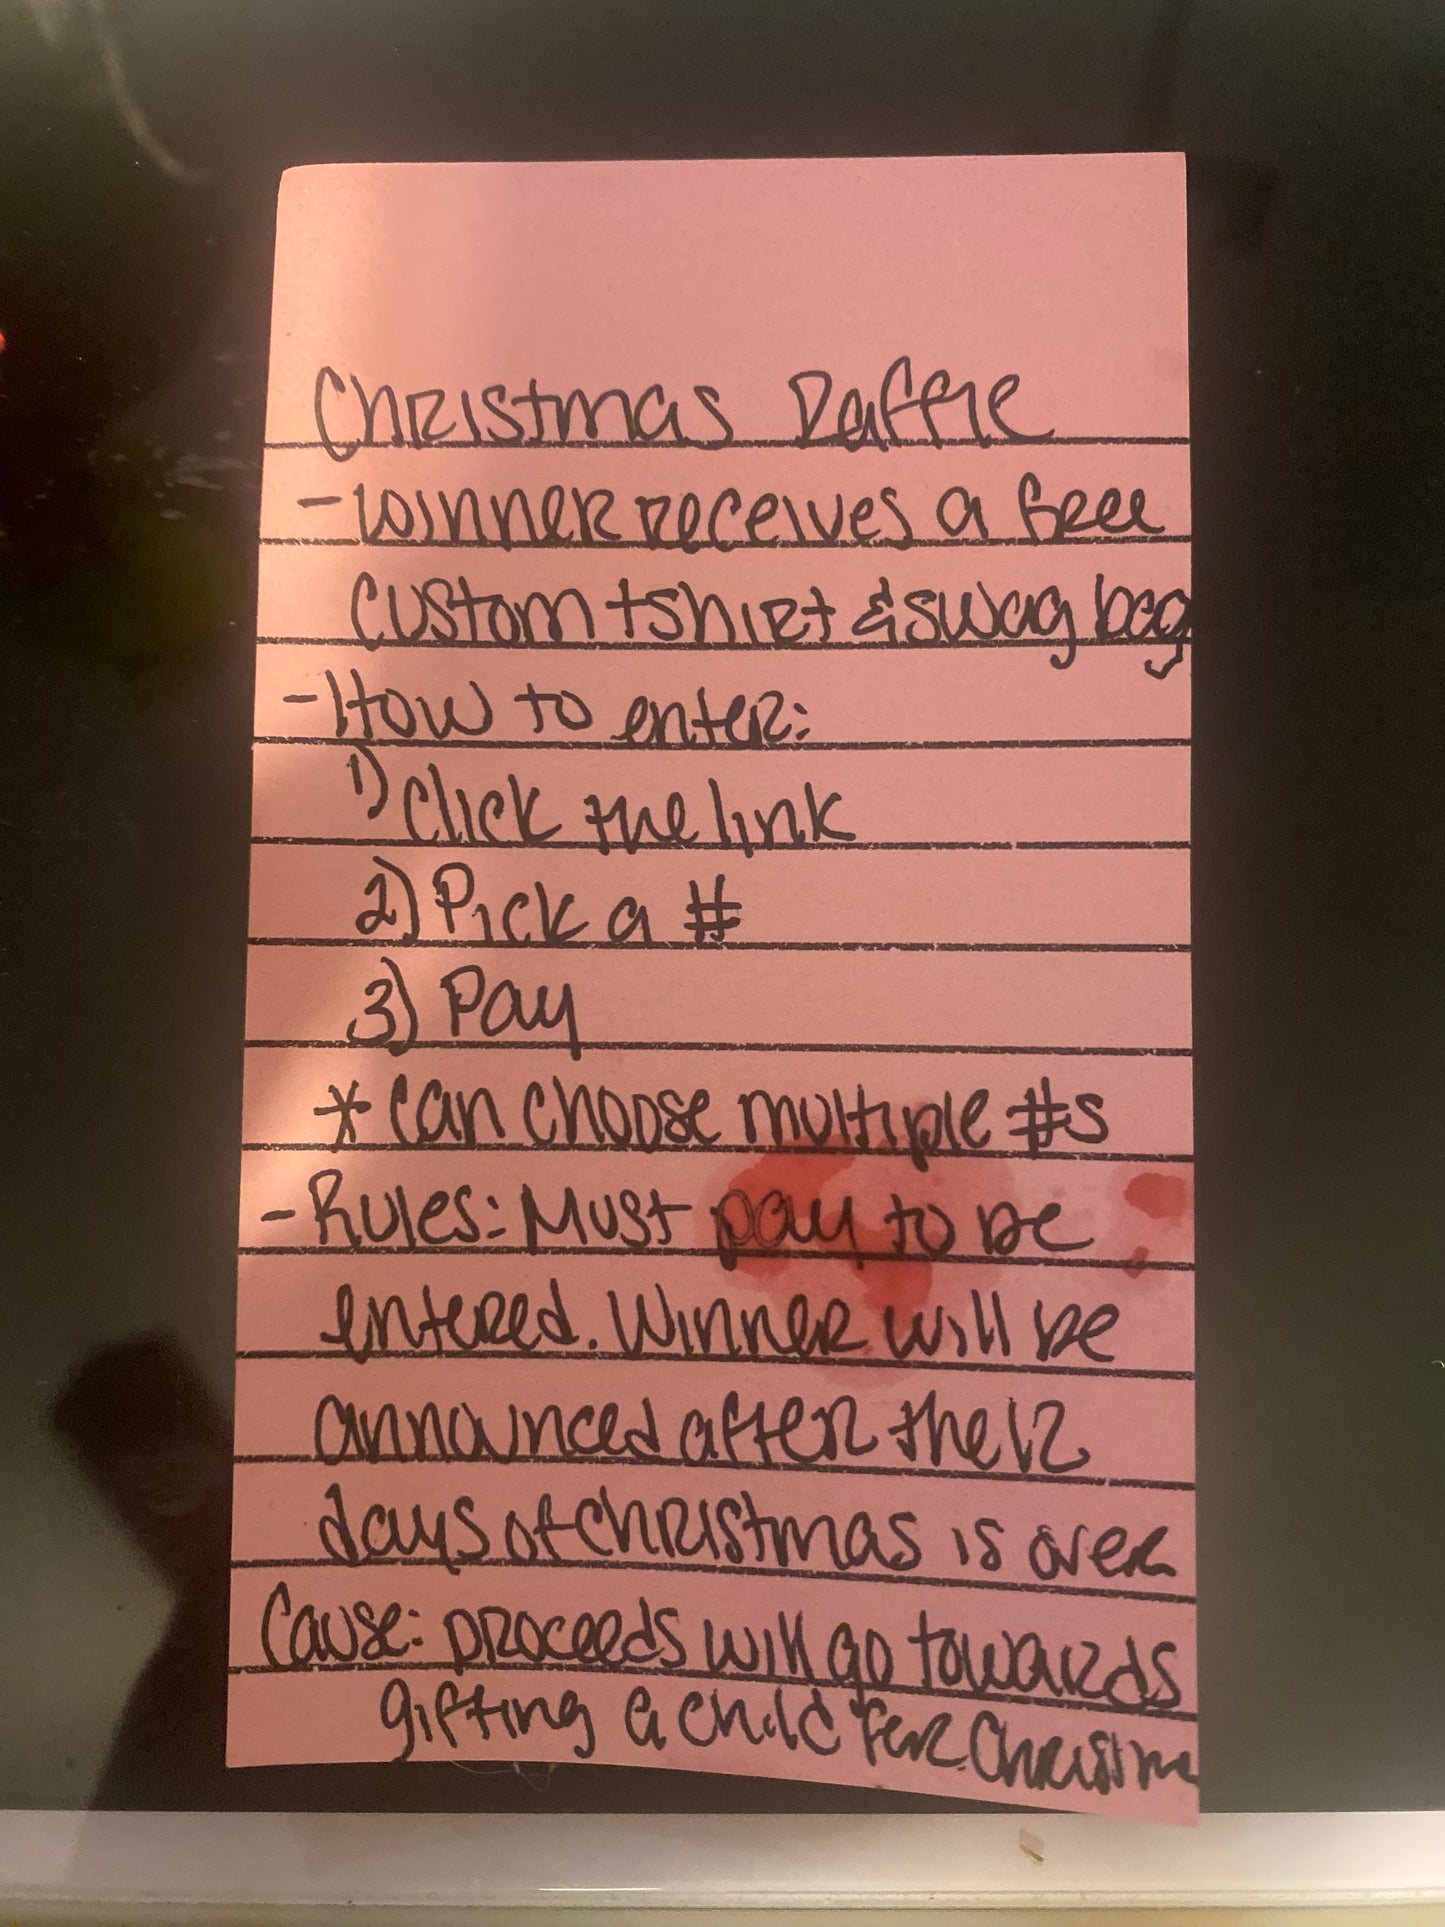 Christmas Raffle
- Winner receives a free
custom tshirt & swag bag
- How to enter:
1) Click the link
2) Pick a #
3) Pay
* can choose multiple #s
- Rules: Must pay to be
entered. Winner will be
announced after the 12
days of christmas is over
Cause: proceeds will go towards
gifting a child for Christm